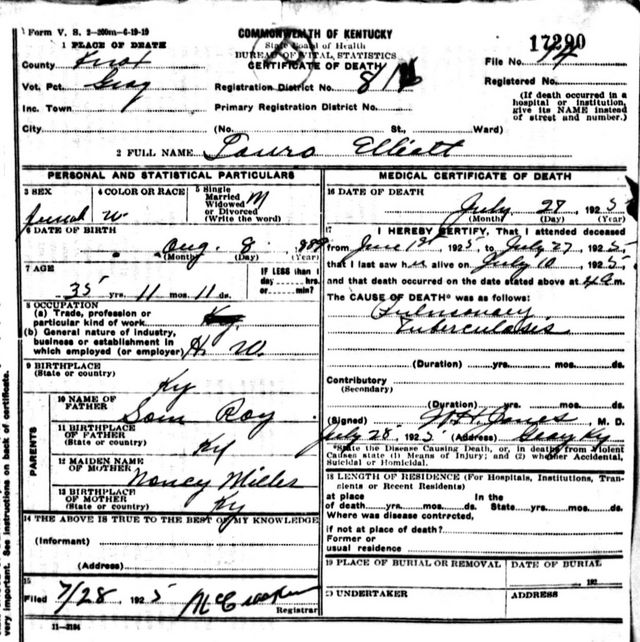 Form V. S. 2-200m-6-19-19
COMMONWEALTH OF KENTUCKY
State Board of Health
BUREAU OF VITAL STATISTICS
CERTIFICATE OF DEATH
17290
1 PLACE OF DEATH
County Knox
File No.
Vot. Pct. Gray
Registration District No.
Registered No.
(If death occurred in a hospital or institution, give its NAME instead of street and number.)
Inc. Town
Primary Registration District No.
City (No. St., Ward)
2 FULL NAME Elliott
PERSONAL AND STATISTICAL PARTICULARS
3 SEX
4 COLOR OR RACE W
5 Single Married Widowed or Divorced (Write the word) M
6 DATE OF BIRTH
Aug. 8
(Month) (Day) (Year)
7 AGE
35 yrs. 11 mos. 11 ds.
IF LESS than 1 day hrs. or min?
8 OCCUPATION
(a) Trade, profession or particular kind of work
(b) General nature of industry, business or establishment in which employed (or employer) H. W.
9 BIRTHPLACE
(State or country) Ky
PARENTS
10 NAME OF FATHER Sam Roy
11 BIRTHPLACE OF FATHER
(State or country) Ky
12 MAIDEN NAME OF MOTHER Nancy Miller
13 BIRTHPLACE OF MOTHER
(State or country) Ky
14 THE ABOVE IS TRUE TO THE BEST OF MY KNOWLEDGE
(Informant)
(Address)
15
Filed 7/28 1925
Registrar
11-3184
MEDICAL CERTIFICATE OF DEATH
16 DATE OF DEATH
July 28 1925
(Month) (Day) (Year)
17 I HEREBY CERTIFY, That I attended deceased
from June 1st 1925, to July 27 1925,
that I last saw her alive on July 10 1925
and that death occurred on the date stated above at 4 a m.
The CAUSE OF DEATH* was as follows:
Pulmonary
Tuberculosis
(Duration) yrs. mos. ds.
Contributory
(Secondary)
(Duration) yrs. mos. ds.
(Signed) Jones M. D.
July 28 1925 (Address) Gray Ky
*State the Disease Causing Death, or, in deaths from Violent Causes state (1) Means of Injury; and (2) whether Accidental, Suicidal or Homicidal.
18 LENGTH OF RESIDENCE (For Hospitals, Institutions, Transients or Recent Residents)
at place of death yrs. mos. ds. In the State yrs. mos. ds.
Where was disease contrrcted,
if not at place of death?
Former or
usual residence
19 PLACE OF BURIAL OR REMOVAL
DATE OF BURIAL
192
20 UNDERTAKER
ADDRESS
very important. See instructions on back of certificate.